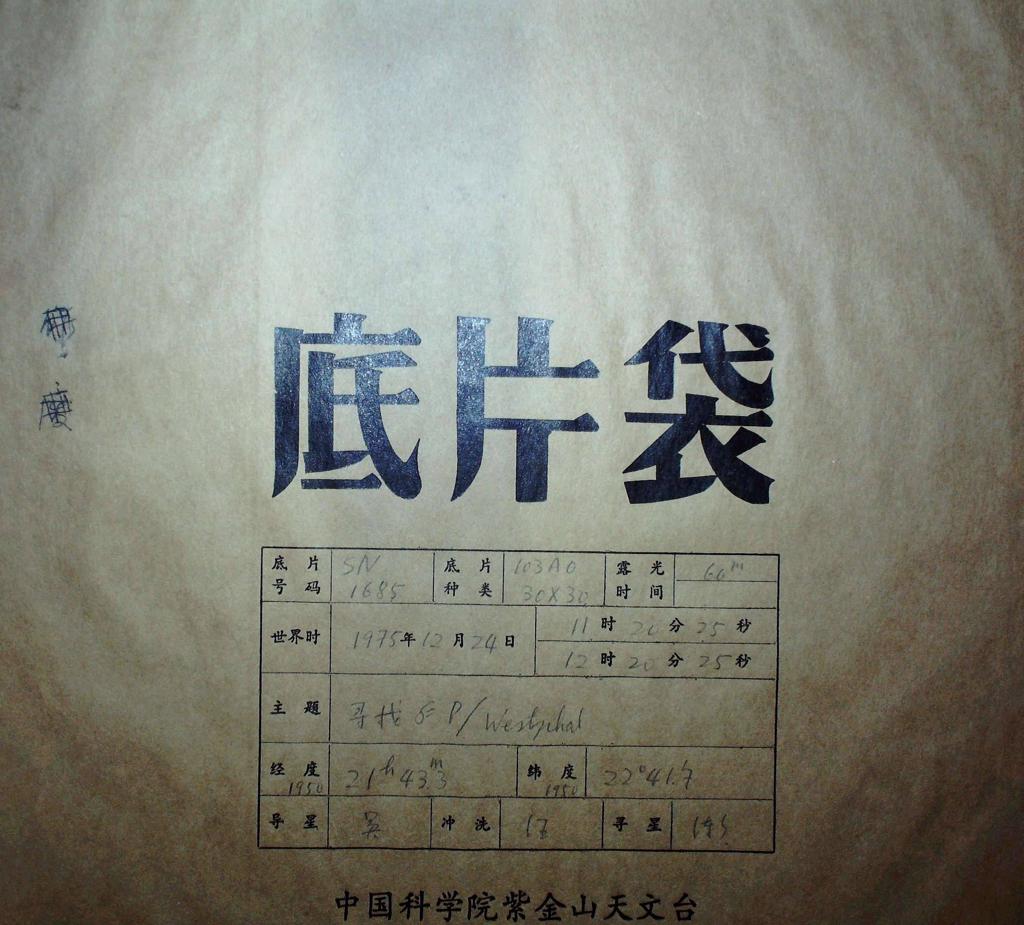 底片袋
底片号码 SN 1685 底片种类 103AO 30X30 露光时间 60m
世界时 1975年12月24日 11时20分25秒
12时20分25秒
主题 寻找 P/Westphal
经度 1950 21h43m3 纬度 1950 22°41'.7
导星 吴 冲洗 寻星
中国科学院紫金山天文台